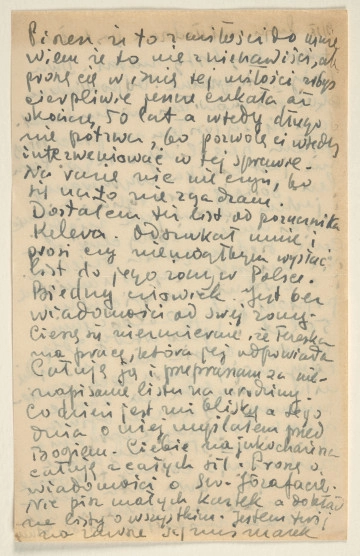 Piszesz, że to z miłości do mnie
wiem że to nie z nienawiści, ale
proszę cię w imię tej miłości abyś
cierpliwie jeszcze czekała aż
skończę 50 lat a wtedy długo
nie potrwa, bo pozwolę ci wtedy
interweniować w tej sprawie.
Na razie nic nie czyń, bo
się na to nie zgadzam.
Dostałem list od porucznika
Odszukał mnie i
prosi czy niemógłbym wysłać
list do jego żony w Polsce.
Biedny człowiek. Jest bez
wiadomości od swej żony.
Cieszę się niezmiernie, że Tereska
ma pracę, która jej odpowiada
Całuję ją i przepraszam za nie-
napisanie listu na urodziny.
Co dzień jest mi bliską a tego
dnia o niej myślałem przed
Bogiem. Ciebie najukochańsza
całuję z całych sił. Proszę o
wiadomości o św. Jozafacie.
Nie pisz małych kartek a dokład
ne listy o wszystkim. Jestem twój
na zawsze